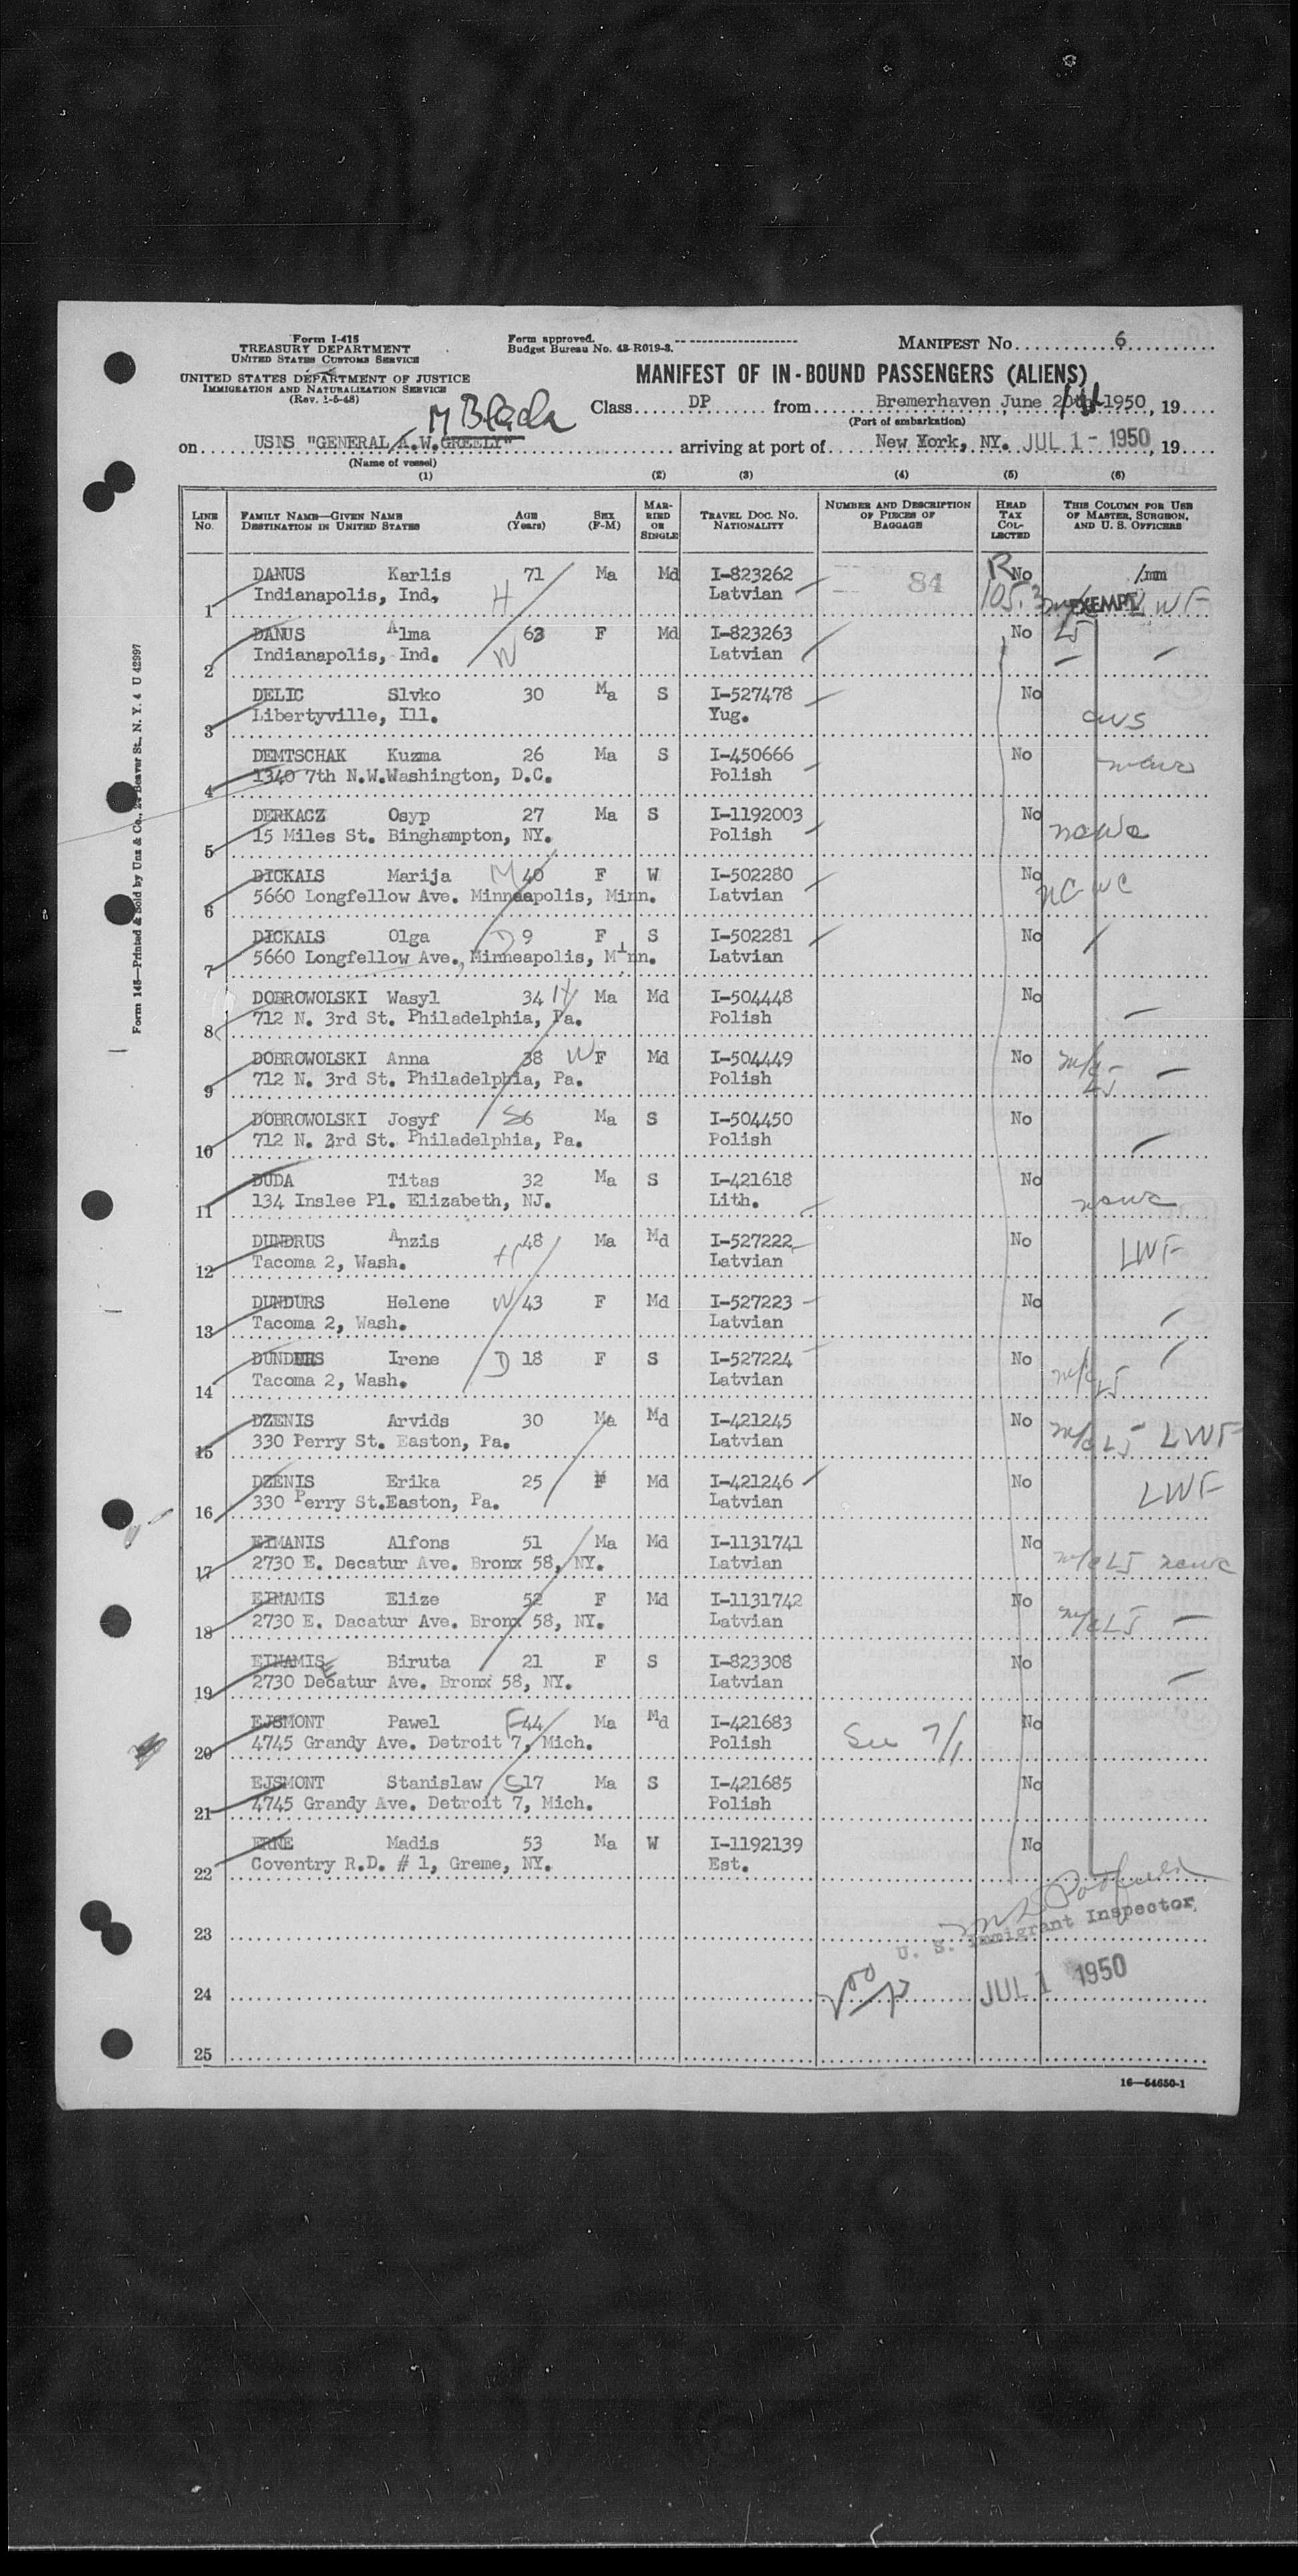 Form I-415
TREASURY DEPARTMENT
UNITED STATES CUSTOMS SERVICE
UNITED STATES DEPARTMENT OF JUSTICE
IMMIGRATION AND NATURALIZATION SERVICE
(Rev. 1-5-48)
Form approved.
Budget Bureau No. 43-R019-3.
MANIFEST NO. 6
MANIFEST OF IN-BOUND PASSENGERS (ALIENS)
Class DP from Bremerhaven, June 1950, 19
(Port of embarkation)
M Black
on USNS "GENERAL A.W. GREELY" arriving at port of New York, NY. JUL 1 - 1950, 19
(Name of vessel)
(1) (2) (3) (4) (5) (6)
LINE NO. FAMILY NAME—GIVEN NAME DESTINATION IN UNITED STATES AGE (Years) SEX (F-M) MARRIED OR SINGLE TRAVEL DOC. NO. NATIONALITY NUMBER AND DESCRIPTION OF PIECES OF BAGGAGE HEAD TAX COLLECTED THIS COLUMN FOR USE OF MASTER, SURGEON, AND U. S. OFFICERS
DANUS Karlis 71 Ma Md I-823262 84 R No
1 Indianapolis, Ind. H Latvian 105.3 EXEMPT LWF
DANUS Alma 63 F Md I-823263 No LJ
2 Indianapolis, Ind. W Latvian
DELIC Slvko 30 Ma S I-527478 No
3 Libertyville, Ill. Yug. cws
DEMTSCHAK Kuzma 26 Ma S I-450666 No
4 1340 7th N.W.Washington, D.C. Polish ncwc
DERKACZ Osyp 27 Ma S I-1192003 No
5 15 Miles St. Binghampton, NY. Polish ncwc
DICKALS Marija M 40 F W I-502280 No
6 5660 Longfellow Ave. Minneapolis, Minn. Latvian NCWC
DICKALS Olga D 9 F S I-502281 No
7 5660 Longfellow Ave., Minneapolis, Minn. Latvian
DOBROWOLSKI Wasyl 34 H Ma Md I-504448 No
8 712 N. 3rd St. Philadelphia, Pa. Polish
DOBROWOLSKI Anna 38 W F Md I-504449 No m/c
9 712 N. 3rd St. Philadelphia, Pa. Polish LJ
DOBROWOLSKI Josyf S 6 Ma S I-504450 No
10 712 N. 3rd St. Philadelphia, Pa. Polish
DUDA Titas 32 Ma S I-421618 No
11 134 Inslee Pl. Elizabeth, NJ. Lith. ncwc
DUNDRUS Anzis 48 Ma Md I-527222 No
12 Tacoma 2, Wash. H Latvian LWF
DUNDURS Helene W 43 F Md I-527223 No
13 Tacoma 2, Wash. Latvian
DUNDURS Irene D 18 F S I-527224 No
14 Tacoma 2, Wash. Latvian m/c LJ
DZENIS Arvids 30 Ma Md I-421245 No
15 330 Perry St. Easton, Pa. Latvian m/c LJ LWF
DZENIS Erika 25 F Md I-421246 No
16 330 Perry St.Easton, Pa. Latvian LWF
EIMANIS Alfons 51 Ma Md I-1131741 No
17 2730 E. Decatur Ave. Bronx 58, NY. Latvian m/c LJ ncwc
EINAMIS Elize 52 F Md I-1131742 No
18 2730 E. Dacatur Ave. Bronx 58, NY. Latvian m/c LJ
EINAMIS Biruta 21 F S I-823308 No
19 2730 Decatur Ave. Bronx 58, NY. Latvian
EJSMONT Pawel F 44 Ma Md I-421683 See 7/1 No
20 4745 Grandy Ave. Detroit 7, Mich. Polish
EJSMONT Stanislaw S 17 Ma S I-421685 No
21 4745 Grandy Ave. Detroit 7, Mich. Polish
ERNE Madis 53 Ma W I-1192139 No
22 Coventry R.D. # 1, Greme, NY. Est.
23 U. S. Immigrant Inspector
24 JUL 1 1950
25
16—54650-1
Form 145—Printed & Sold by Unz & Co., 24 Beaver St., N. Y. 4 U 42997